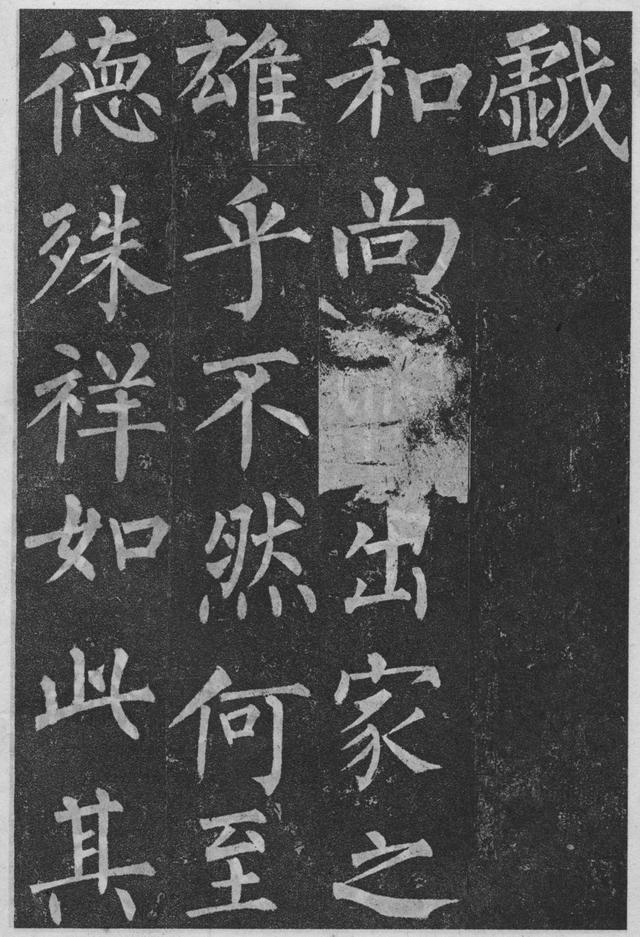 戲
和尚出家之
雄乎不然何至
德殊祥如此其